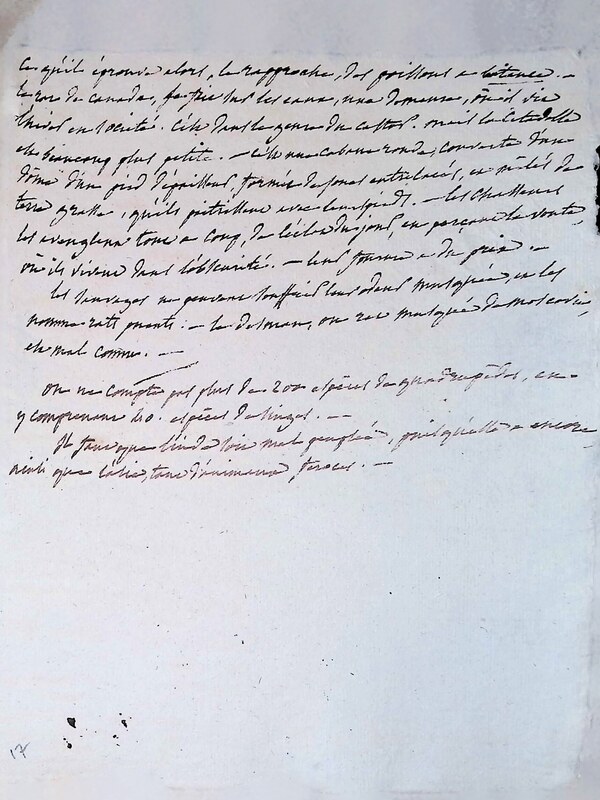 ce qu'il éprouve alors, le rapproche, des poissons a laitance. —
le rat de canada, se fait sur les eaux, une demeure, où il vit
l'hiver en société. c'est dans le genre du castor. mais la citadelle
est beaucoup plus petite. — c'est une cabane ronde, couverte d'un
dôme d'un pied d'épaisseur, formée de joncs entrelacés, et mêlés de
terre grasse, qu'ils pétrissent avec leurs pieds. — les chasseurs
les aveuglent tout a coup, de l'éclat du jour, en perçant la voute
où ils vivent dans l'obscurité. — leur fourure a du prix. —
les sauvages ne peuvent souffrir leur odeur musquée, et les
nomme rats puants. — le desman, ou rat musqué de moscovie,
est mal connu. —
on ne compte pas plus de 200 espèces de quadrupèdes, en
y comprenant 40. espèces de singes. —
Il faut que l'inde soit mal peuplée, puisqu'elle a encore
ainsi que l'asie, tant d'animaux féroces. —
17